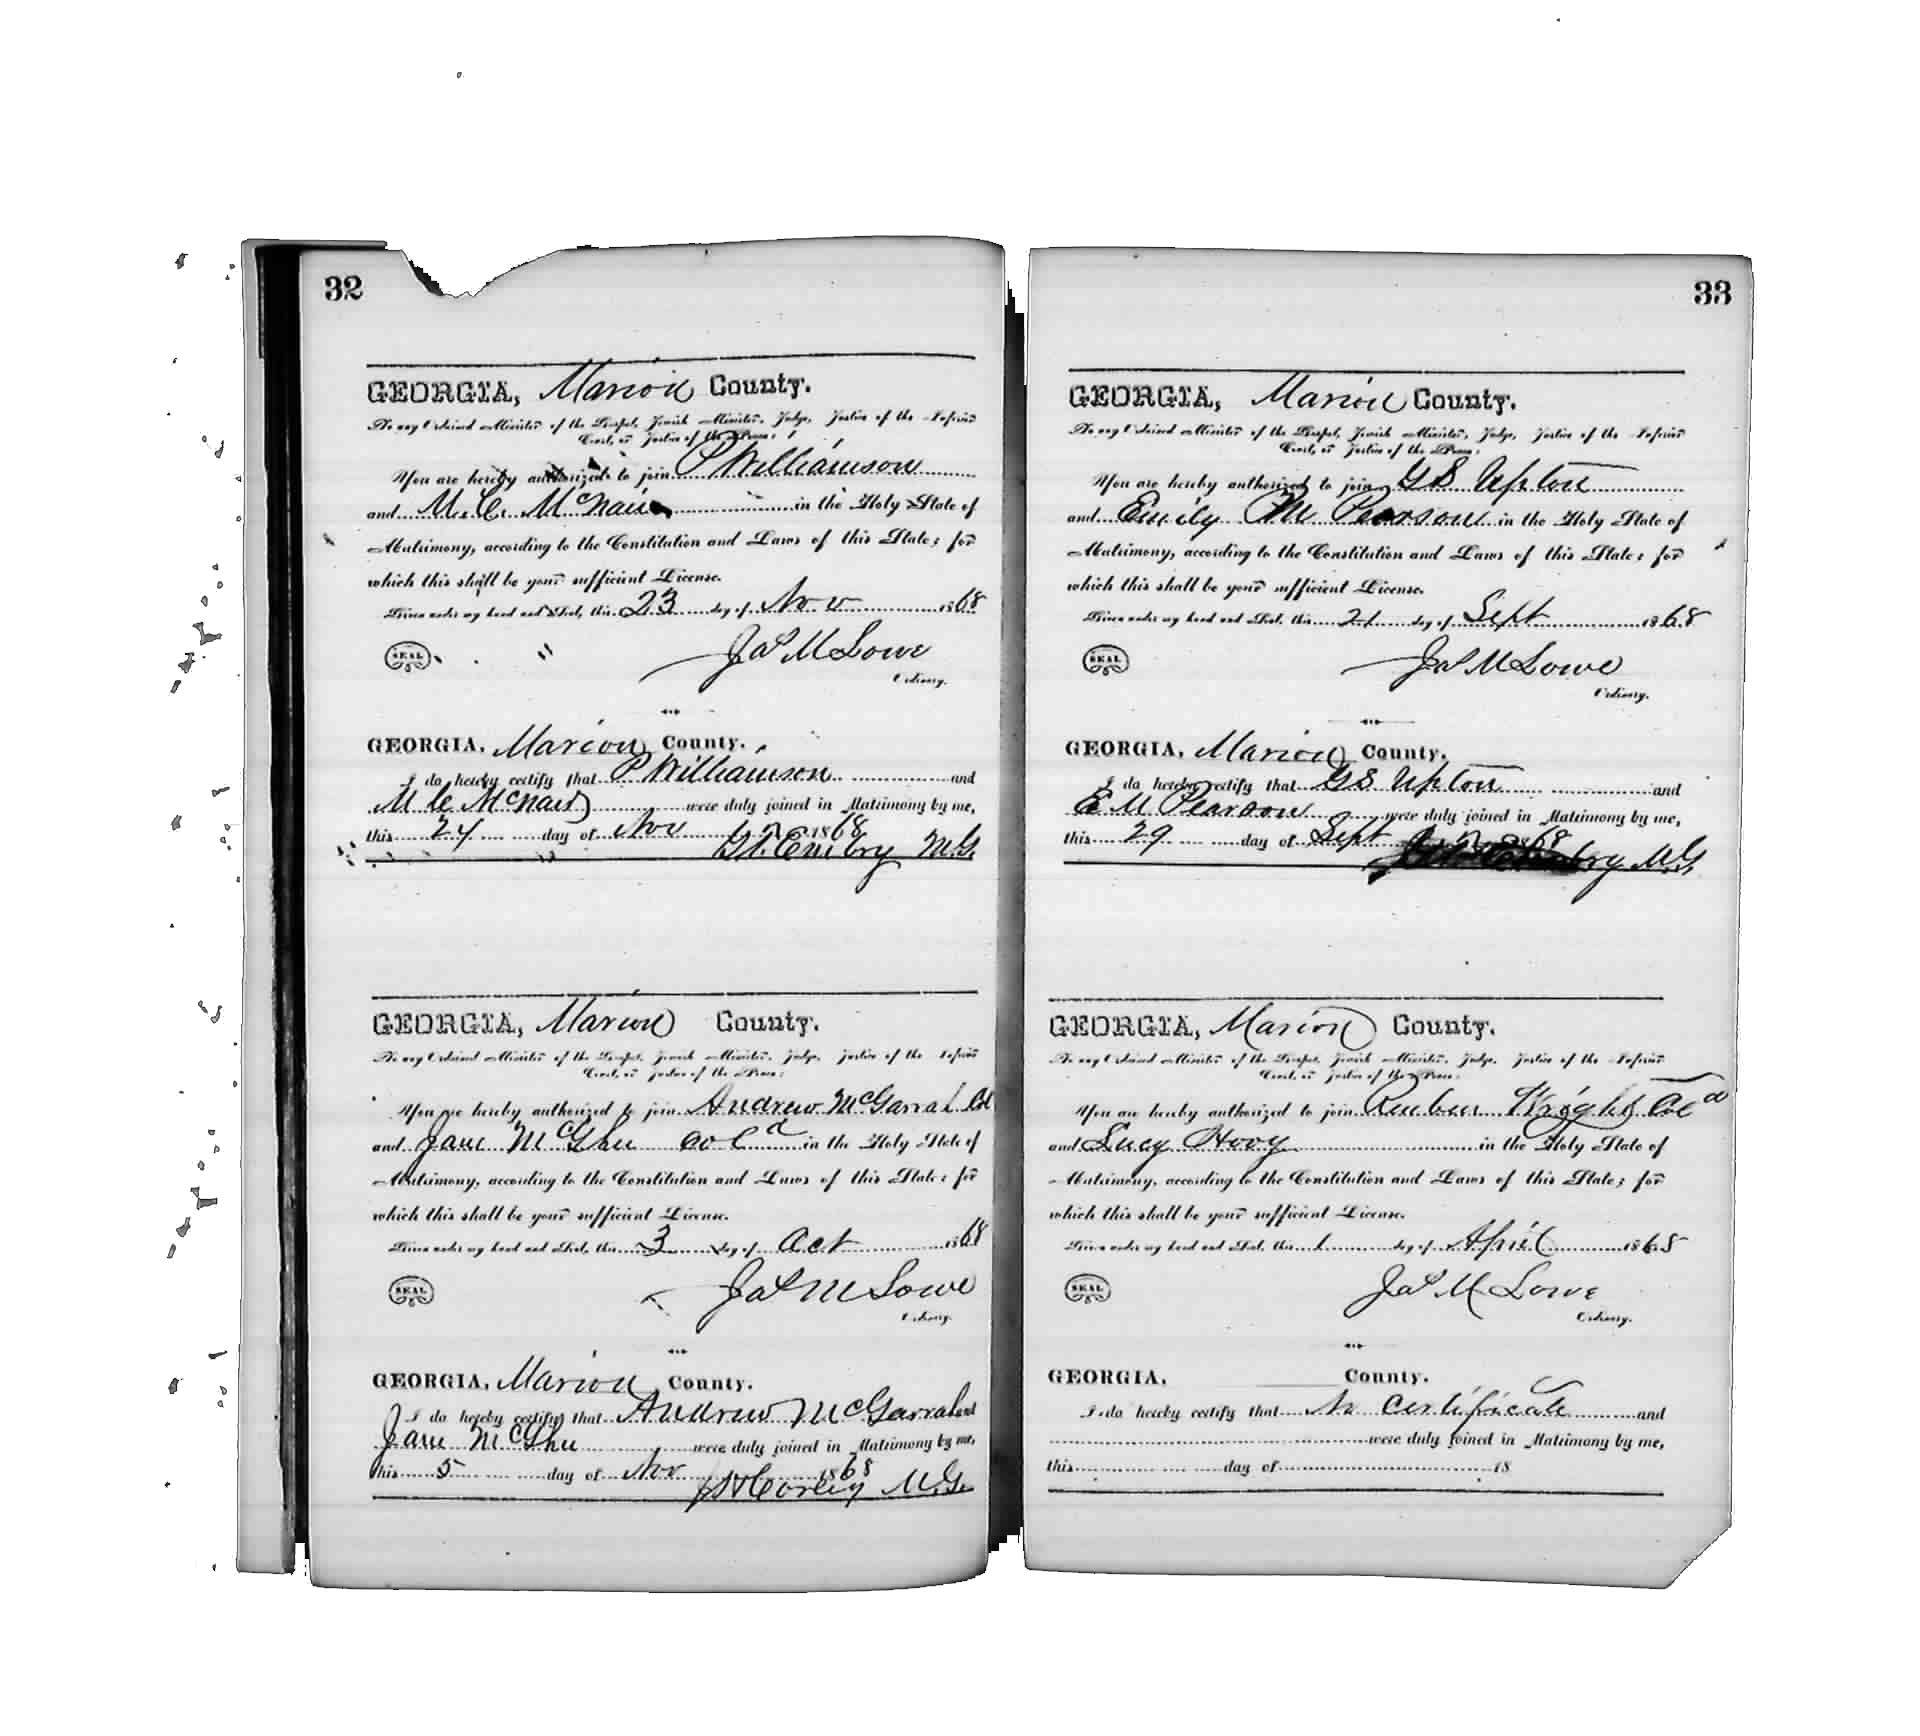 32
GEORGIA, Marion County.
To any Ordained Minister of the Gospel, Jewish Minister, Judge, Justice of the Inferior
Court, or Justice of the Peace:
You are hereby authorized to join P Williamson
and M. C. McNair in the Holy State of
Matrimony, according to the Constitution and Laws of this State; for
which this shall be your sufficient License.
Given under my hand and Seal, this 23 day of Nov 1868
SEAL
Jas M Lowe
Ordinary.
GEORGIA, Marion County.
I do hereby certify that P Williamson and
M C McNair were duly joined in Matrimony by me,
this 24 day of Nov 1868
Embry M.G.
GEORGIA, Marion County.
To any Ordained Minister of the Gospel, Jewish Minister, Judge, Justice of the Inferior
Court, or Justice of the Peace:
You are hereby authorized to join Andrew McGarrah Col
and Jane McGhee Cold in the Holy State of
Matrimony, according to the Constitution and Laws of this State; for
which this shall be your sufficient License.
Given under my hand and Seal, this 3 day of Oct 1868
SEAL
Jas M Lowe
Ordinary.
GEORGIA, Marion County.
I do hereby certify that Andrew McGarrah and
Jane McGhee were duly joined in Matrimony by me,
this 5 day of Nov 1868
Corley M.G.
33
GEORGIA, Marion County.
To any Ordained Minister of the Gospel, Jewish Minister, Judge, Justice of the Inferior
Court, or Justice of the Peace:
You are hereby authorized to join G S Upton
and Emily M Pearson in the Holy State of
Matrimony, according to the Constitution and Laws of this State; for
which this shall be your sufficient License.
Given under my hand and Seal, this 21 day of Sept 1868
SEAL
Jas M Lowe
Ordinary.
GEORGIA, Marion County.
I do hereby certify that G S Upton and
E M Pearson were duly joined in Matrimony by me,
this 29 day of Sept 1868
M.G.
GEORGIA, Marion County.
To any Ordained Minister of the Gospel, Jewish Minister, Judge, Justice of the Inferior
Court, or Justice of the Peace:
You are hereby authorized to join Reuben Wright Cold
and Lucy Hovy in the Holy State of
Matrimony, according to the Constitution and Laws of this State; for
which this shall be your sufficient License.
Given under my hand and Seal, this 1 day of April 1868
SEAL
Jas M Lowe
Ordinary.
GEORGIA, County.
I do hereby certify that No Certificate and
were duly joined in Matrimony by me,
this day of 18